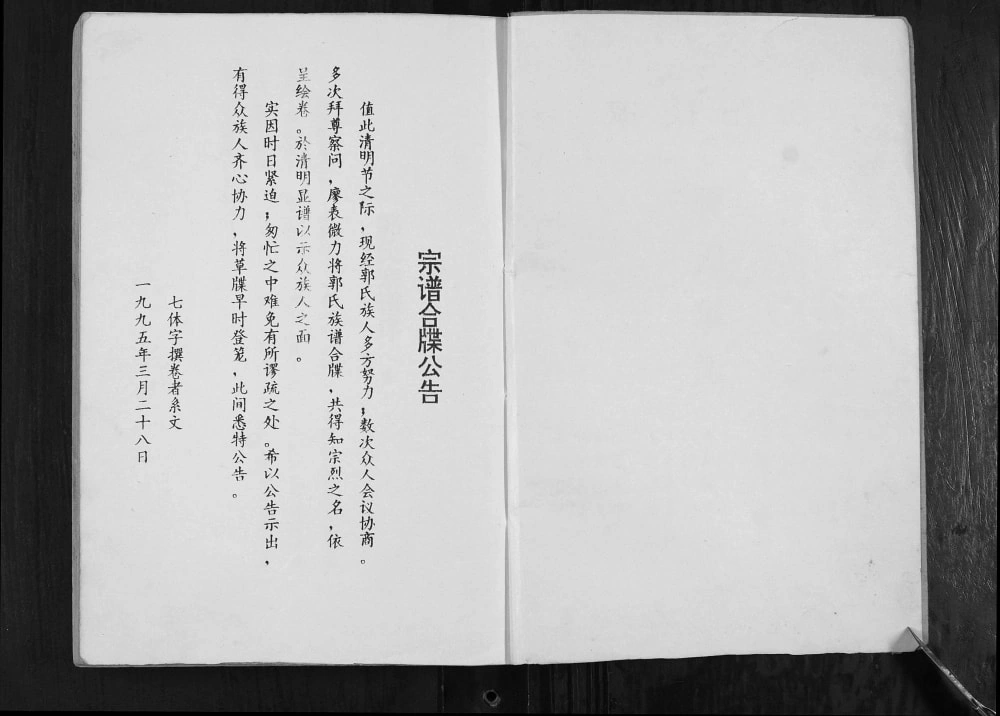 宗谱合牒公告
值此清明节之际，现经郭氏族人多方努力；数次众人会议协商。
多次拜尊察问，廖表微力将郭氏族谱合牒，共得知宗烈之名，依
呈绘卷。於清明显谱以示众族人之面。
实因时日紧迫；匆忙之中难免有所谬疏之处。希以公告示出，
有得众族人齐心协力，将草牒早时登笼，此间悉特公告。
七体字撰卷者系文
一九九五年三月二十八日